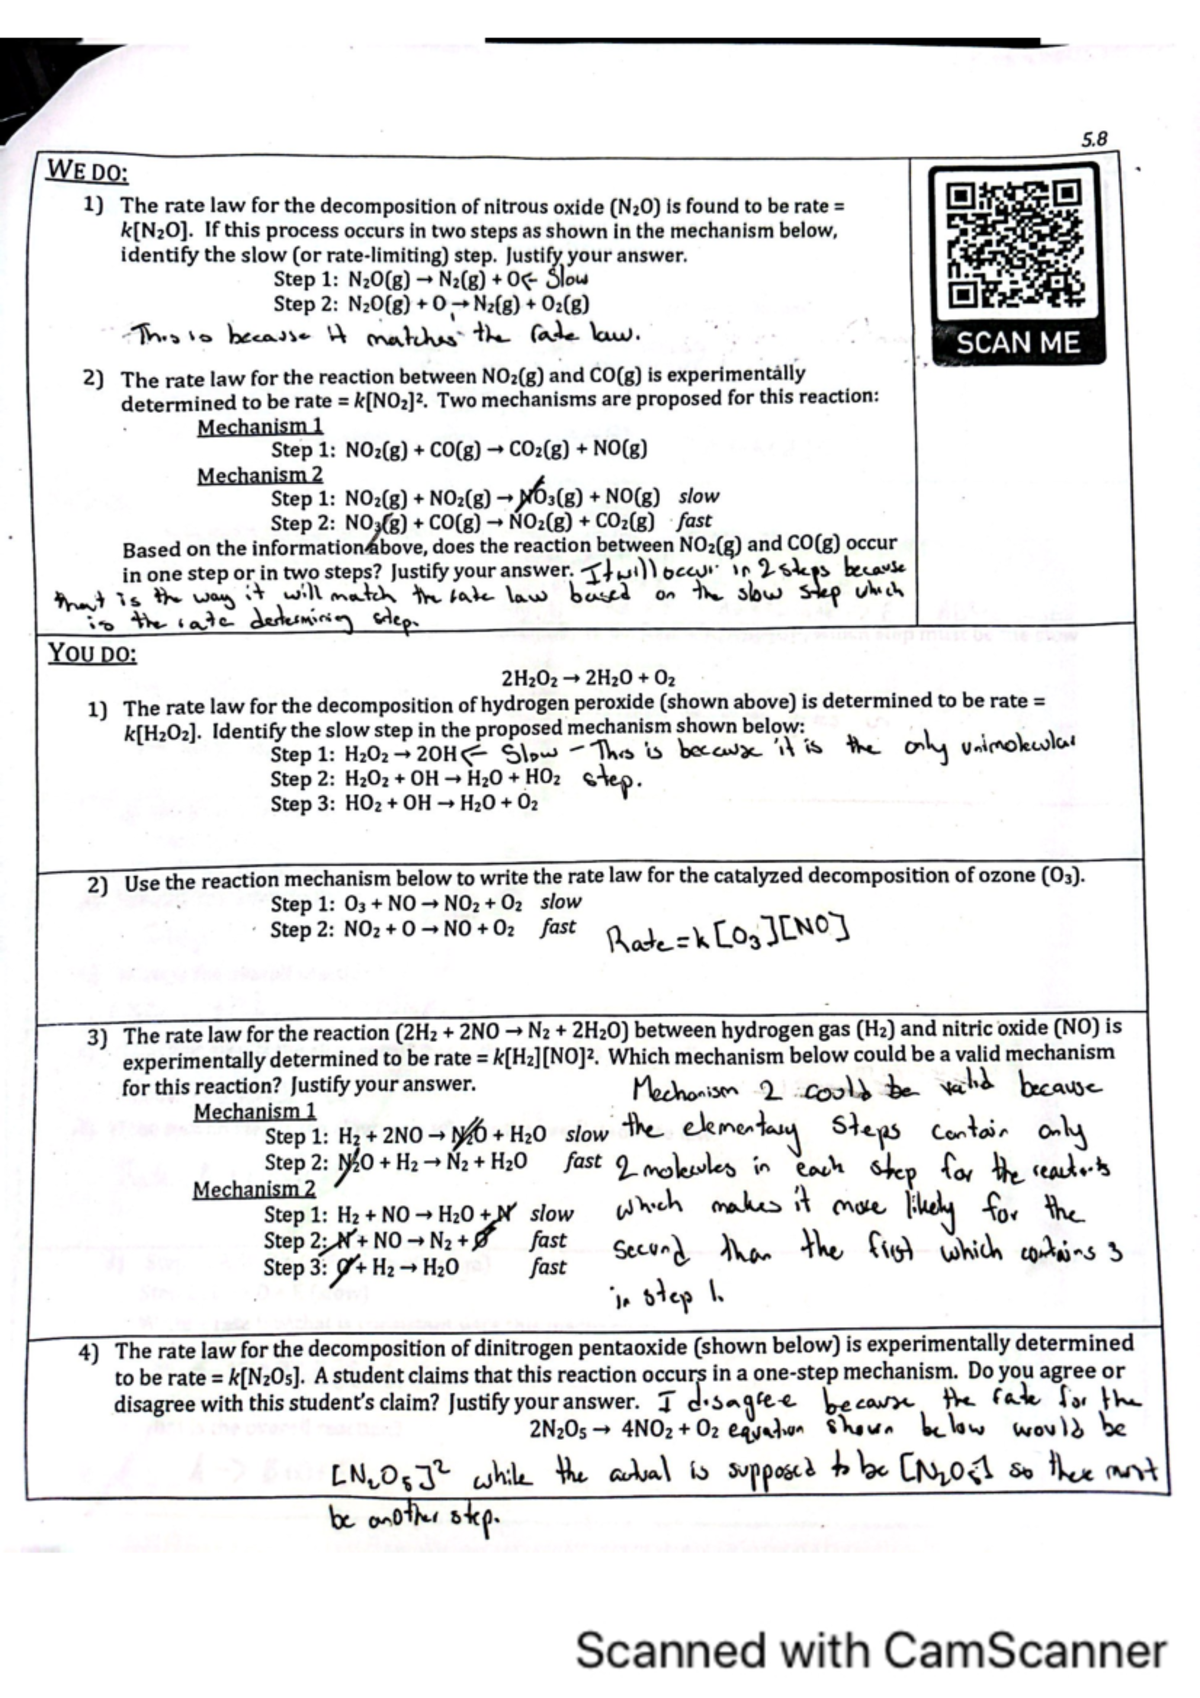 5.8
WE DO:
1) The rate law for the decomposition of nitrous oxide (N₂O) is found to be rate =
k[N₂O]. If this process occurs in two steps as shown in the mechanism below,
identify the slow (or rate-limiting) step. Justify your answer.
Step 1: N₂O(g) → N₂(g) + O ← Slow
Step 2: N₂O(g) + O → N₂(g) + O₂(g)
- This is because it matches the rate law.
SCAN ME
2) The rate law for the reaction between NO₂(g) and CO(g) is experimentally
determined to be rate = k[NO₂]². Two mechanisms are proposed for this reaction:
Mechanism 1
Step 1: NO₂(g) + CO(g) → CO₂(g) + NO(g)
Mechanism 2
Step 1: NO₂(g) + NO₂(g) → NO₃(g) + NO(g) slow
Step 2: NO₃(g) + CO(g) → NO₂(g) + CO₂(g) fast
Based on the information above, does the reaction between NO₂(g) and CO(g) occur
in one step or in two steps? Justify your answer. It will occur in 2 steps because
that is the way it will match the rate law based on the slow step which
is the rate determining step.
YOU DO:
2H₂O₂ → 2H₂O + O₂
1) The rate law for the decomposition of hydrogen peroxide (shown above) is determined to be rate =
k[H₂O₂]. Identify the slow step in the proposed mechanism shown below:
Step 1: H₂O₂ → 2OH ← Slow - This is because it is the only unimolecular
Step 2: H₂O₂ + OH → H₂O + HO₂ step.
Step 3: HO₂ + OH → H₂O + O₂
2) Use the reaction mechanism below to write the rate law for the catalyzed decomposition of ozone (O₃).
Step 1: O₃ + NO → NO₂ + O₂ slow
Step 2: NO₂ + O → NO + O₂ fast Rate = k[O₃][NO]
3) The rate law for the reaction (2H₂ + 2NO → N₂ + 2H₂O) between hydrogen gas (H₂) and nitric oxide (NO) is
experimentally determined to be rate = k[H₂][NO]². Which mechanism below could be a valid mechanism
for this reaction? Justify your answer. Mechanism 2 could be valid because
Mechanism 1
Step 1: H₂ + 2NO → N₂O + H₂O slow the elementary steps contain only
Step 2: N₂O + H₂ → N₂ + H₂O fast 2 molecules in each step for the reactants
Mechanism 2
Step 1: H₂ + NO → H₂O + N slow which makes it more likely for the
Step 2: N + NO → N₂ + O fast second than the first which contains 3
Step 3: O + H₂ → H₂O fast
in step 1.
4) The rate law for the decomposition of dinitrogen pentaoxide (shown below) is experimentally determined
to be rate = k[N₂O₅]. A student claims that this reaction occurs in a one-step mechanism. Do you agree or
disagree with this student's claim? Justify your answer. I disagree because the rate for the
2N₂O₅ → 4NO₂ + O₂ equation shown below would be
[N₂O₅]² while the actual is supposed to be [N₂O₅] so there must
be another step.
Scanned with CamScanner